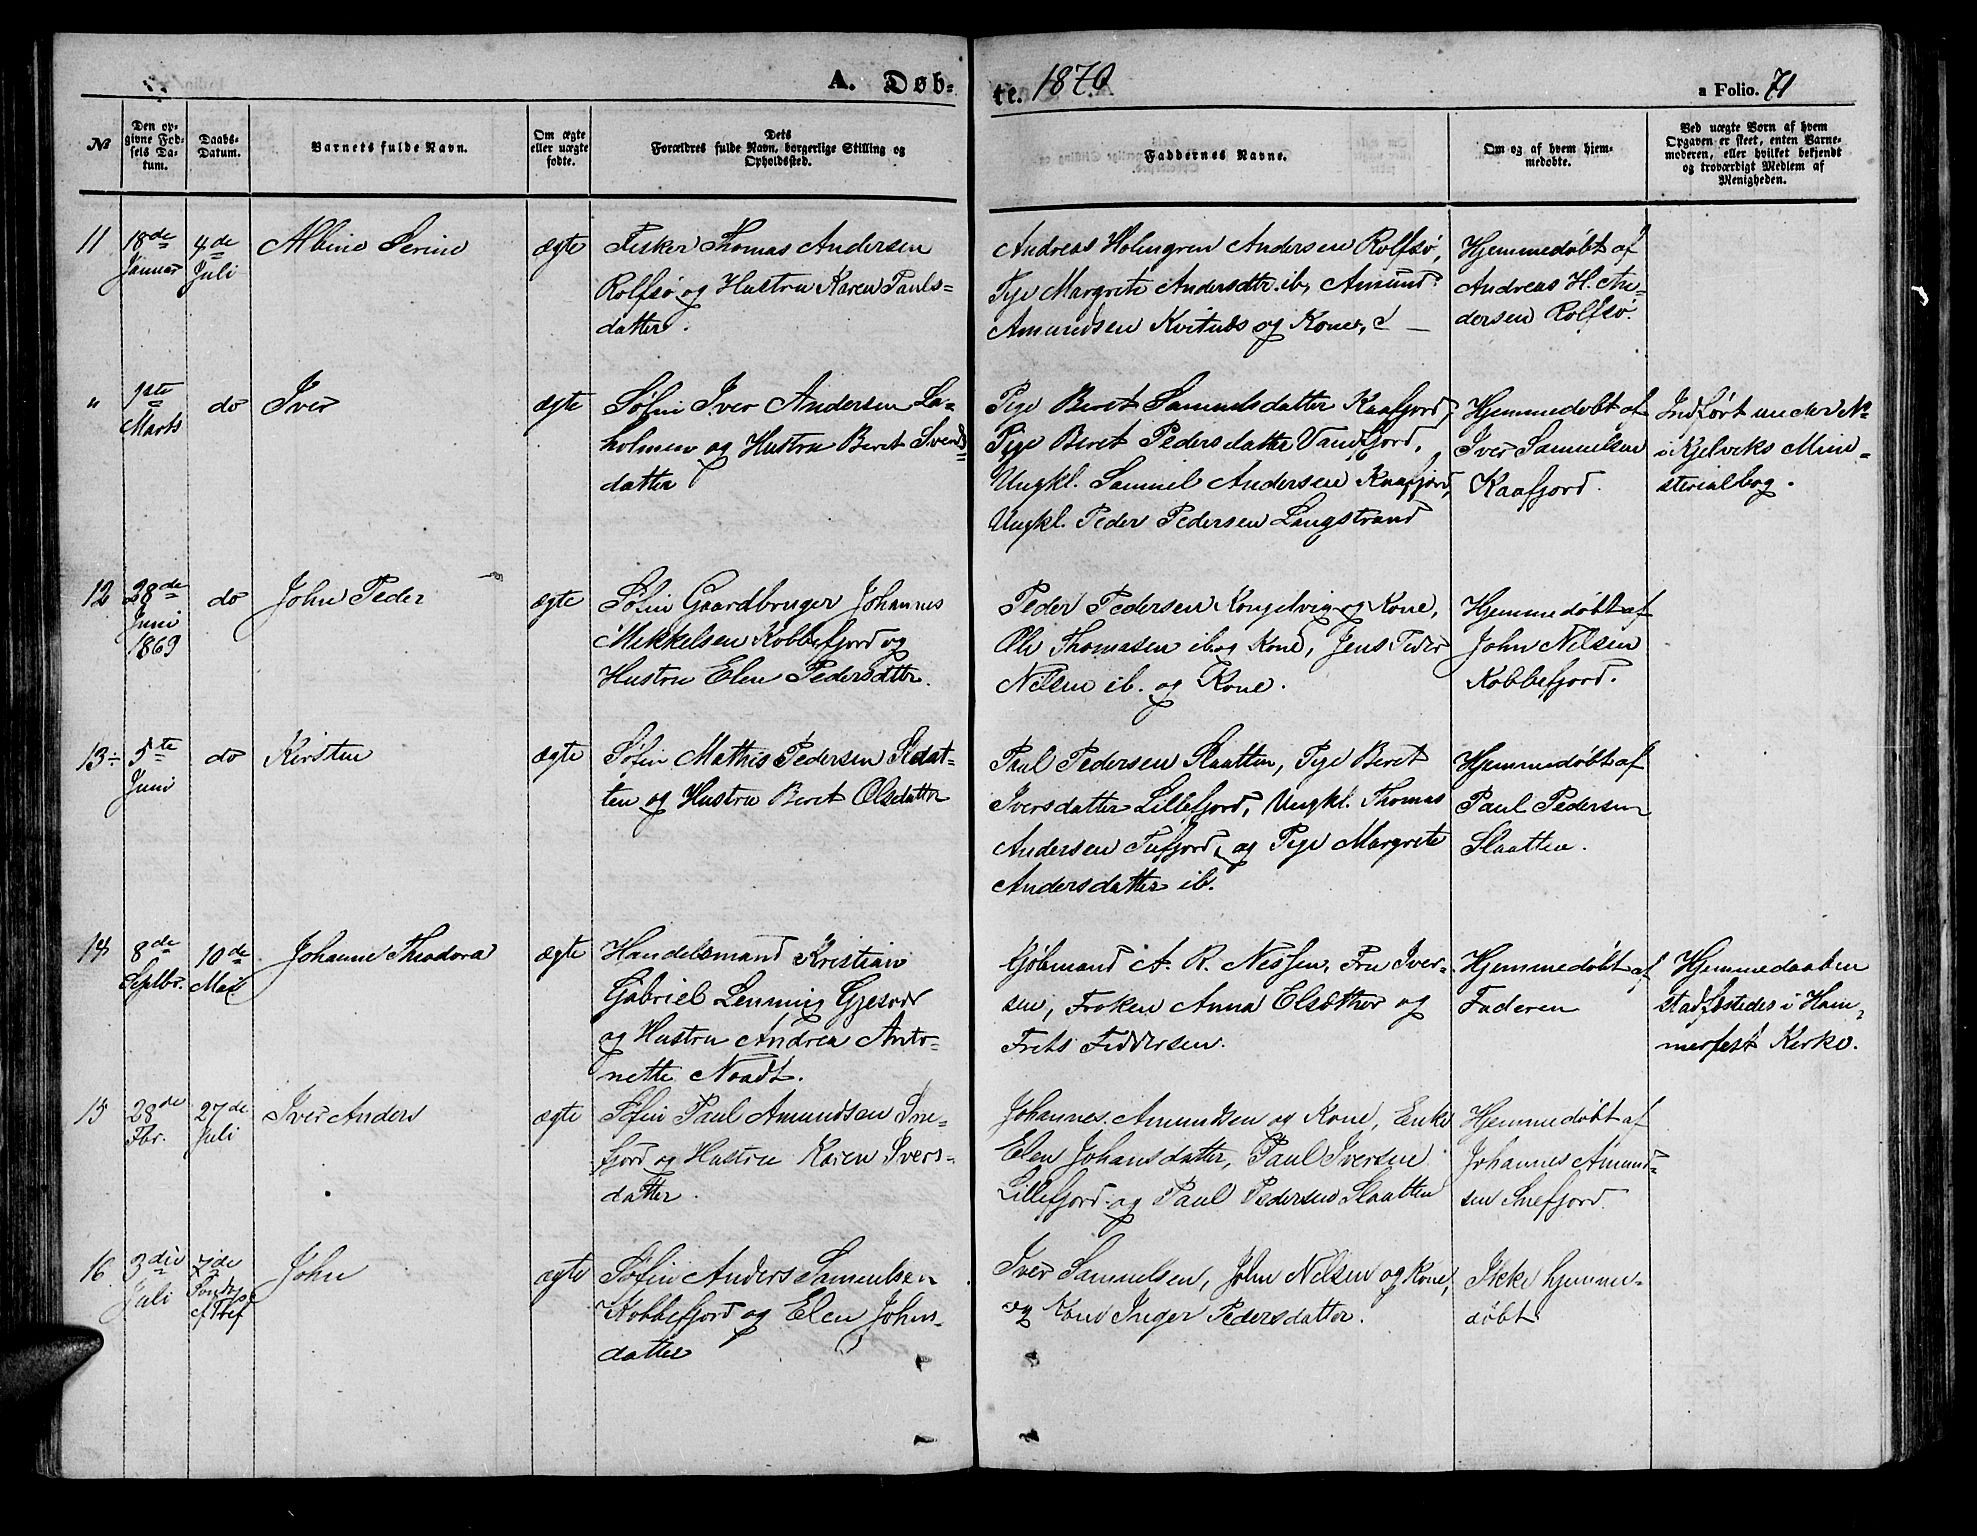 A. Døb-
te. 1870
a Folio. 71
№
Den op-
givne Fød-
sels Da-
tum.
Daabs-
Datum.
Barnets fulde Navn.
Om ægte
eller uægte
fødte.
Dets
Forældres fulde Navn, borgerlige Stilling og
Opholdssted.
Faddernes Navne.
Om og af hvem hjem-
medøbte.
Ved uægte Born af hvem
Opgaven er skeet, enten Barne-
moderen, eller hvilket bekjendt
og troværdigt Medlem af
Menigheden.
11 18de Januar 4de Juli Albine Serine ægte
Fisker Thomas Andersen
Rolfsø og Hustru Karen Pauls-
datter.
Andreas Holmgren Andersen Rolfsø,
Pige Margrete Andersdtr. ib, Amund
Amundsen Kvitnæs og Kone,
Hjemmedøbt af
Andreas H. An-
dersen Rolfsø.
" 1ste Marts do Iver ægte
Søfin Iver Andersen La-
holmen og Hustru Beret Svens-
datter
Pige Beret Samuelsdatter Kaafjord,
Pige Beret Pedersdatter Vandfjord,
Ungkl. Samuel Andersen Kaafjord,
Ungkl. Peder Pedersen Langstrand
Hjemmedøbt af
Iver Samuelsen
Kaafjord.
Indført under N°
i Kjelviks Mini-
sterialbog.
12 28de Juni 1869 do John Peder ægte
Søfin Gaardbruger Johannes
Mikkelsen Kobbefjord og
Hustru Elen Pedersdatter.
Peder Pedersen Kongelvig og Kone,
Ole Thomasen ib. og Kone, Jens Peder
Nilsen ib. og Kone.
Hjemmedøbt af
John Nilsen
Kobbefjord.
13 5te Juni do Kirsten ægte
Søfin Mathis Pedersen Slaat-
ten og Hustru Beret Olsdatter
Paul Pedersen Slaatten, Pige Beret
Iversdatter Lillefjord, Ungkl. Thomas
Andersen Tufjord, og Pige Margrete
Andersdatter ib.
Hjemmedøbt af
Paul Pedersen
Slaatten.
14 8de Septbr. 10de Mai Johanne Theodora ægte
Handelsmand Kristian
Gabriel Lemming Gjesvær
og Hustru Andrea Anto-
nette Noadt.
Kjøbmand A. R. Nissen, Fru Iver-
sen, Frøken Anna Elsæther og
Frits Fiddersen.
Hjemmedøbt af
Faderen
Hjemmedaaben
stadfæstedes i Ham-
merfest Kirke.
15 28de Fbr. 27de Juli Iver Anders ægte
Søfin Paul Amundsen Sne-
fjord og Hustru Karen Ivers-
datter.
Johannes Amundsen og Kone, Enke
Elen Johansdatter, Paul Iversen
Lillefjord og Paul Pedersen Slaatten
Hjemmedøbt af
Johannes Amund-
sen Snefjord.
16 3die Juli 7de John ægte
Søfin Anders Samuelsen
Kobbefjord og Elen Johns-
datter
Iver Samuelsen, John Nilsen og Kone,
og Kone Inger Pedersdatter.
Ikke hjemme-
døbt